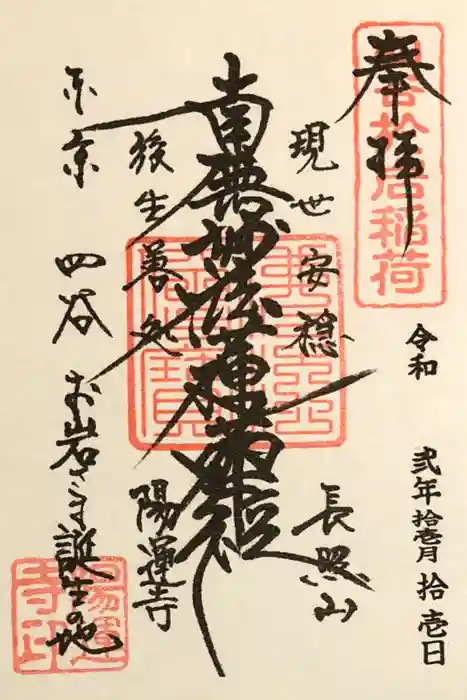 奉拝
令和
弐年拾壱月拾壱日
現世安穏
長照山
南無妙法蓮華経
後生善処
陽運寺
東京
四谷
お岩さま誕生の地
陽運
寺印